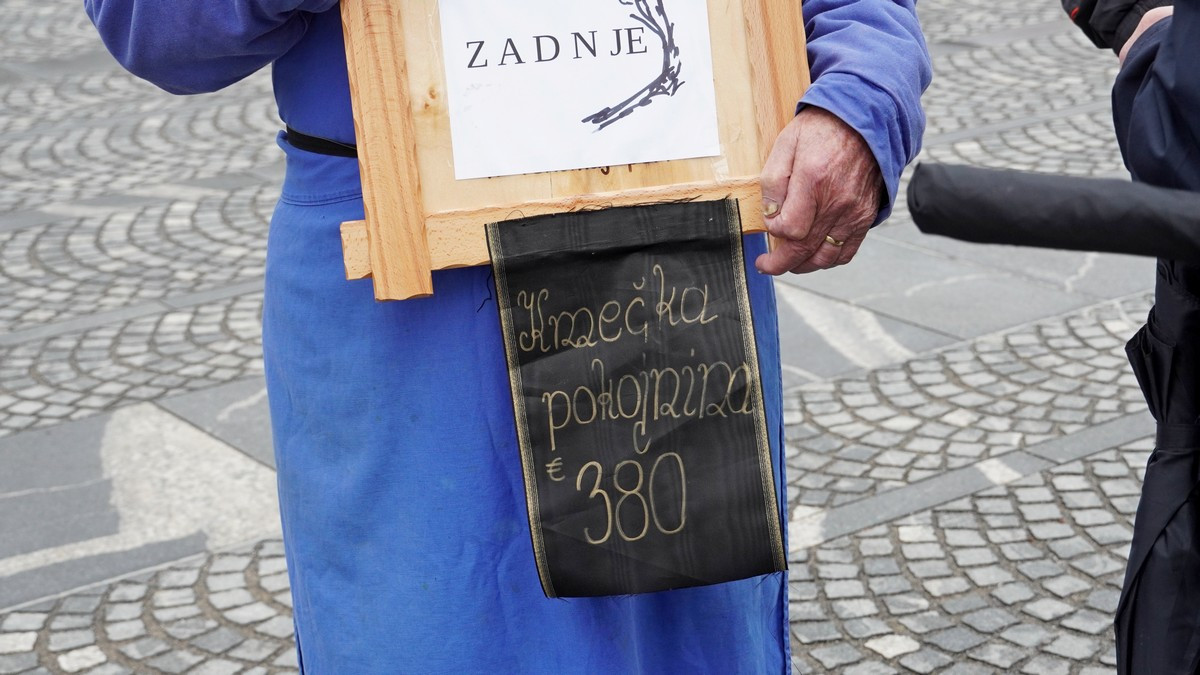 ZADNJE
Kmečka
pokojnina
€ 380